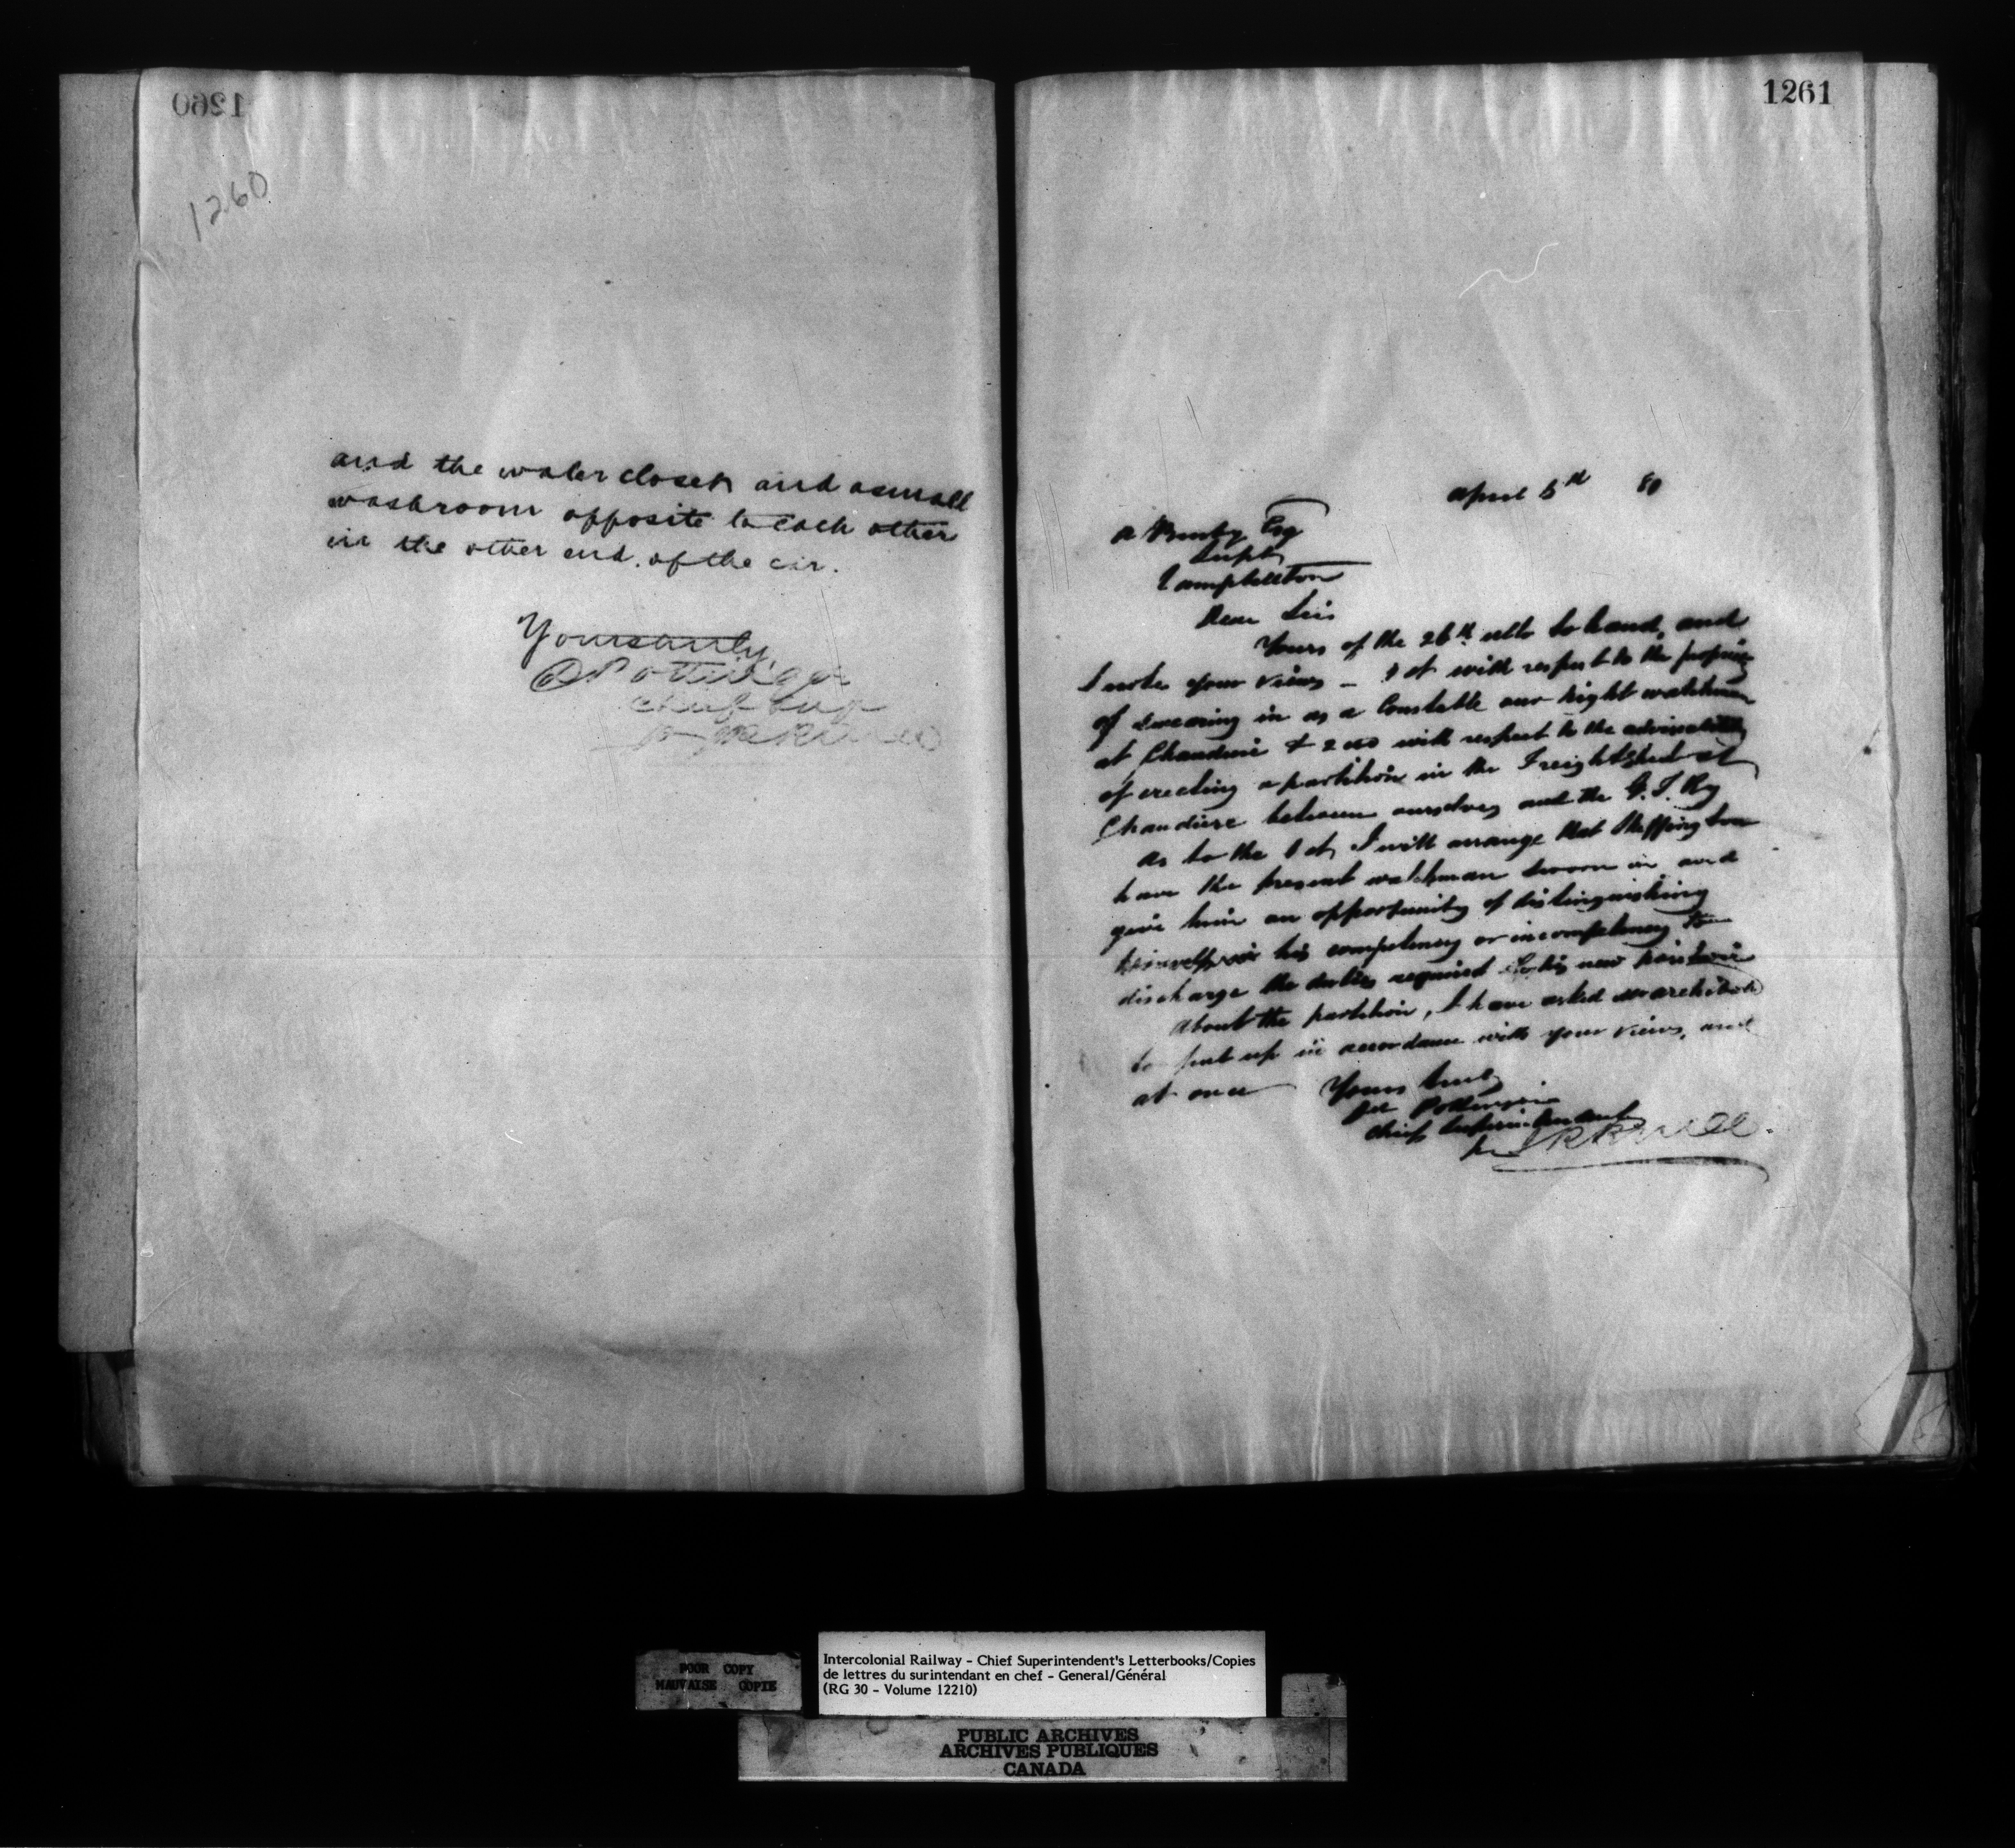 1260
1260
and the water closet and a small
washroom opposite to each other
in the other end of the car.
Yours truly,
D Pottinger
Chief Supt
1261
April 5th 80
A Busby Esq
Supt
Campbellton
Dear Sir
Yours of the 26th ulto to hand, and
I note your views – 1st with respect to the
of swearing in as a Constable our night watchman
at Chaudiere & 2nd with respect to the advisability
of erecting a partition in the Freight shed at
Chaudiere between ourselves and the G.T. Ry
As to the 1st, I will arrange that
have the present watchman sworn in and
give him an opportunity of distinguishing
himself his competency or incompetency to
discharge the duties required his new position
About the partition, I have asked Mr Archibald
to put up in accordance with your views, and
at once
Yours truly
Pottinger
Chief Superintendent
POOR COPY
MAUVAISE COPIE
Intercolonial Railway - Chief Superintendent's Letterbooks/Copies
de lettres du surintendant en chef - General/Général
(RG 30 - Volume 12210)
PUBLIC ARCHIVES
ARCHIVES PUBLIQUES
CANADA